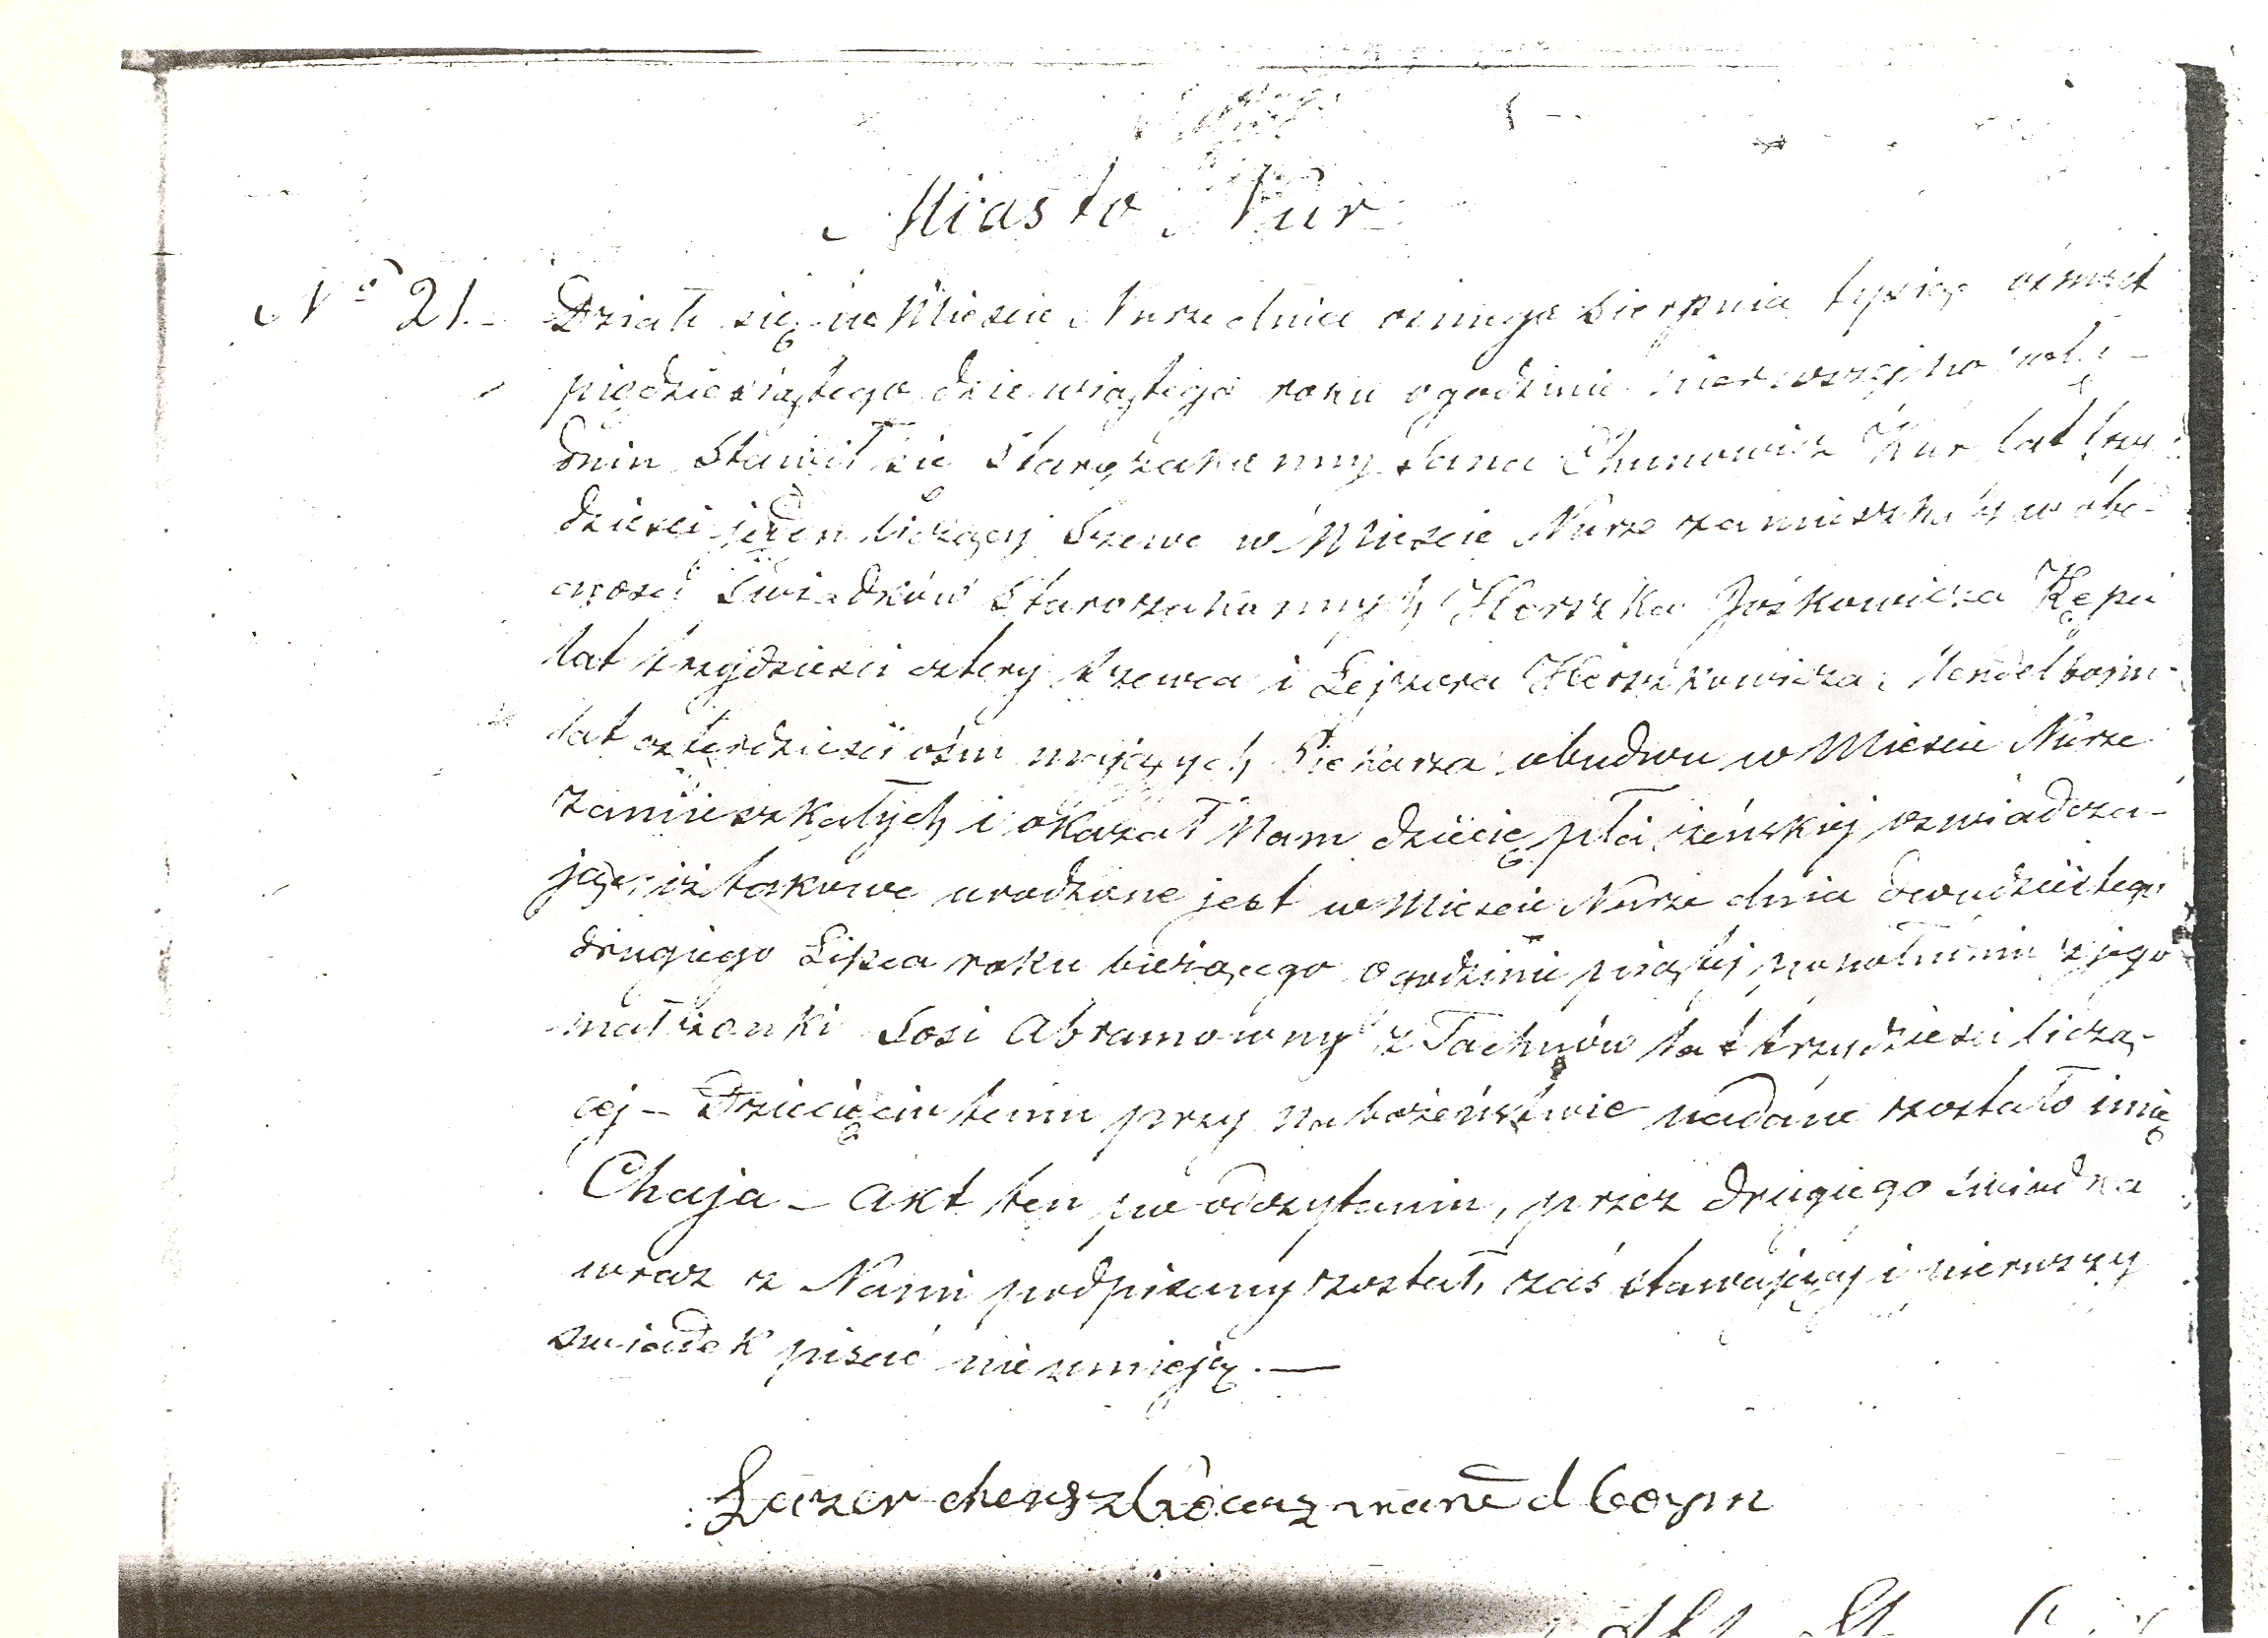 Miasto Nur
No 21. Działo się w Mieście Nurze dnia ósmego Sierpnia tysiąc ośmset
pięдziesiątego dziewiątego roku o godzinie pierwszej po połu-
dniu Stawił się Starozakonny Chunowicz Kur lat trzy
dzieści jeden liczący Szewc w Mieście Nurze zamieszkały w obe-
cności Świadków Starozakonnych Herszka Joskowicza Kępa
lat trzydzieści cztery Szewca i Lejzora Herszkowicza Mendelbojm
lat czterdzieści ośm mających Piekarza obudwu w Mieście Nurze
zamieszkałych i okazał Nam dziecię płci żeńskiej oświadcza-
jąc iż takowe urodzone jest w Mieście Nurze dnia dwudziestego
drugiego Lipca roku bieżącego o godzinie piątej po południu z jego
małżonki Sosi Abramowny z Tachnów lat trzydzieści liczą-
cej – Dziecięciu temu przy nabożeństwie nadane zostało imię
Chaja – Akt ten po odczytaniu, przez drugiego świadka
wraz z Nami podpisany został, zaś stawający i pierwszy
świadek pisać nie umieją. —